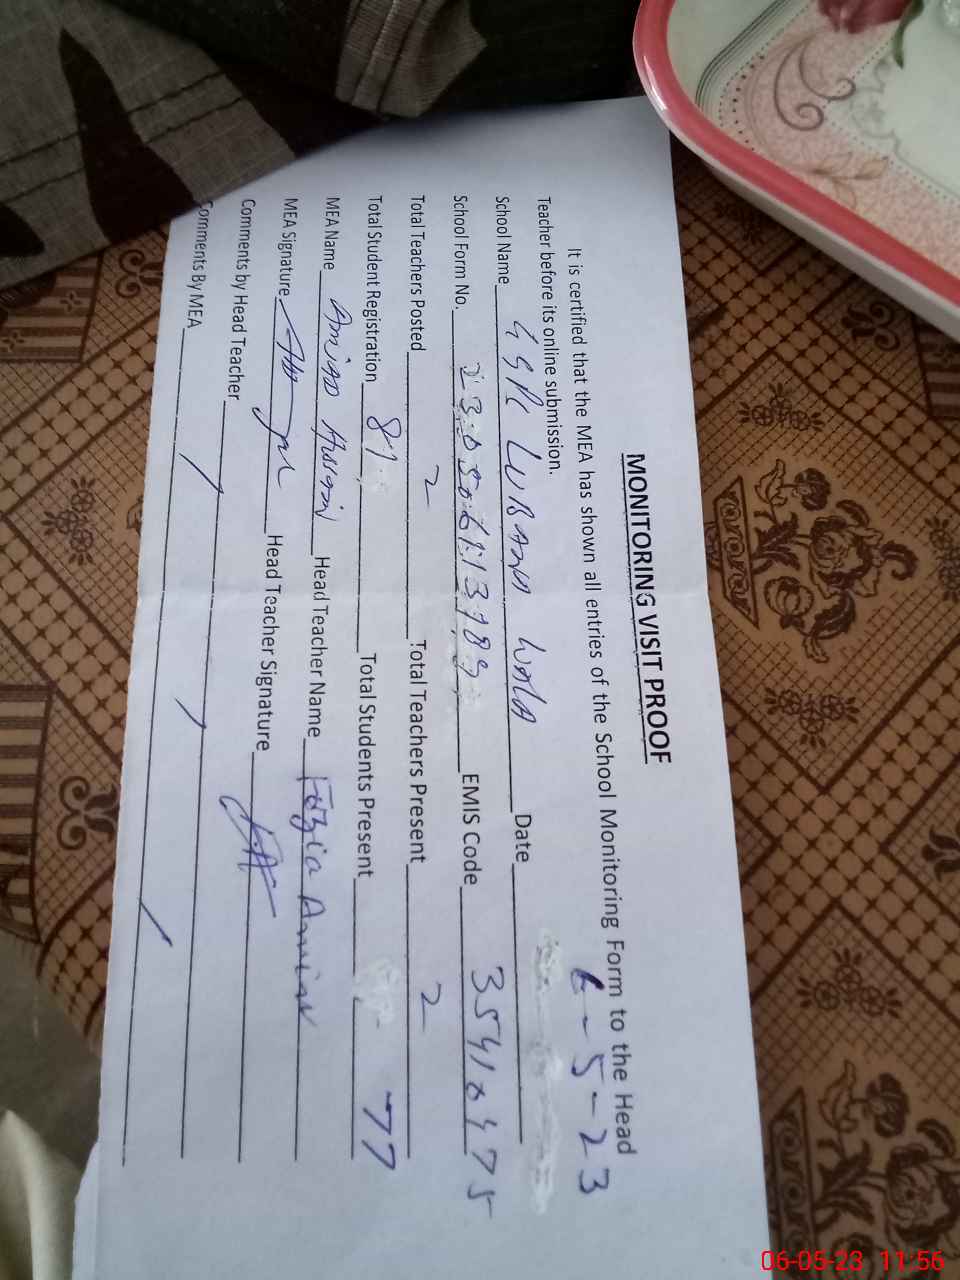 MONITORING VISIT PROOF
It is certified that the MEA has shown all entries of the School Monitoring Form to the Head
Teacher before its online submission.
School Name Wala Date 6-5-23
School Form No. EMIS Code
Total Teachers Posted 2 Total Teachers Present 2
Total Student Registration Total Students Present 77
MEA Name Hussain Head Teacher Name Fozia
MEA Signature Head Teacher Signature
Comments by Head Teacher
Comments By MEA
06-05-23 11:56